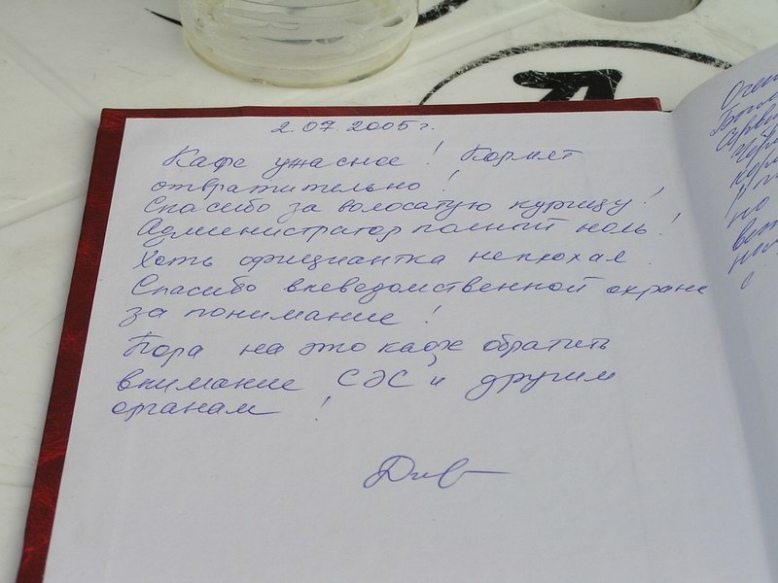 2.07.2005г.
Кафе ужасное! Кормят
отвратительно!
Спасибо за волосатую курицу!
Администратор полный ноль!
Хоть официантка неплохая.
Спасибо вневедомственной охране
за понимание!
Пора на это кафе обратить
внимание СЭС и другим
органам!